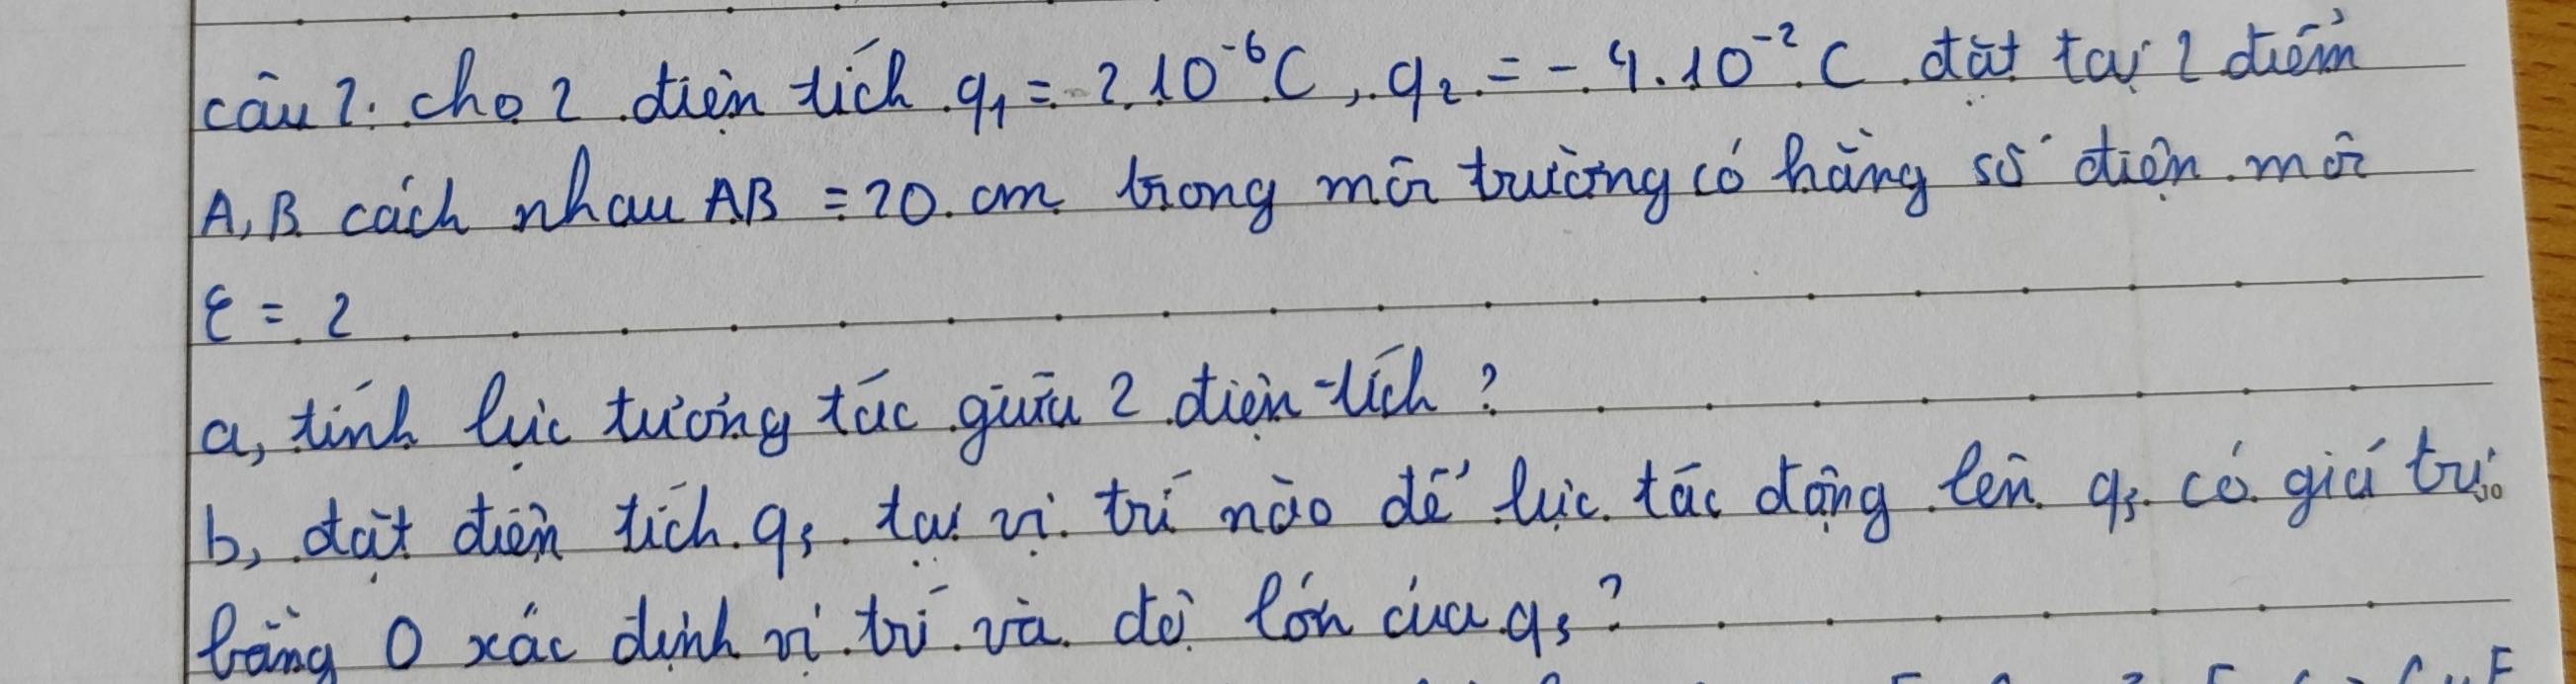 câu 2. cho 2 điện tích q₁ = 2.10⁻⁶C, q₂ = -4.10⁻²C đặt tại 2 điểm
A, B cách nhau AB = 20 cm trong môi trường có hằng số điện môi
ε = 2
a, tính lực tương tác giữa 2 điện tích ?
b, đặt điện tích q₃ tại vị trí nào để lực tác động lên q₃ có giá trị
bằng 0 xác định vị trí và độ lớn của q₃ ?